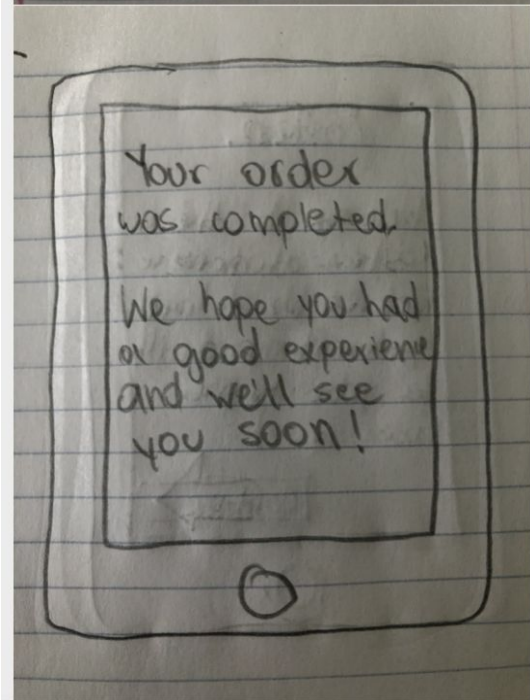 Your order
was completed.
We hope you had
a good experience
and we'll see
you soon!